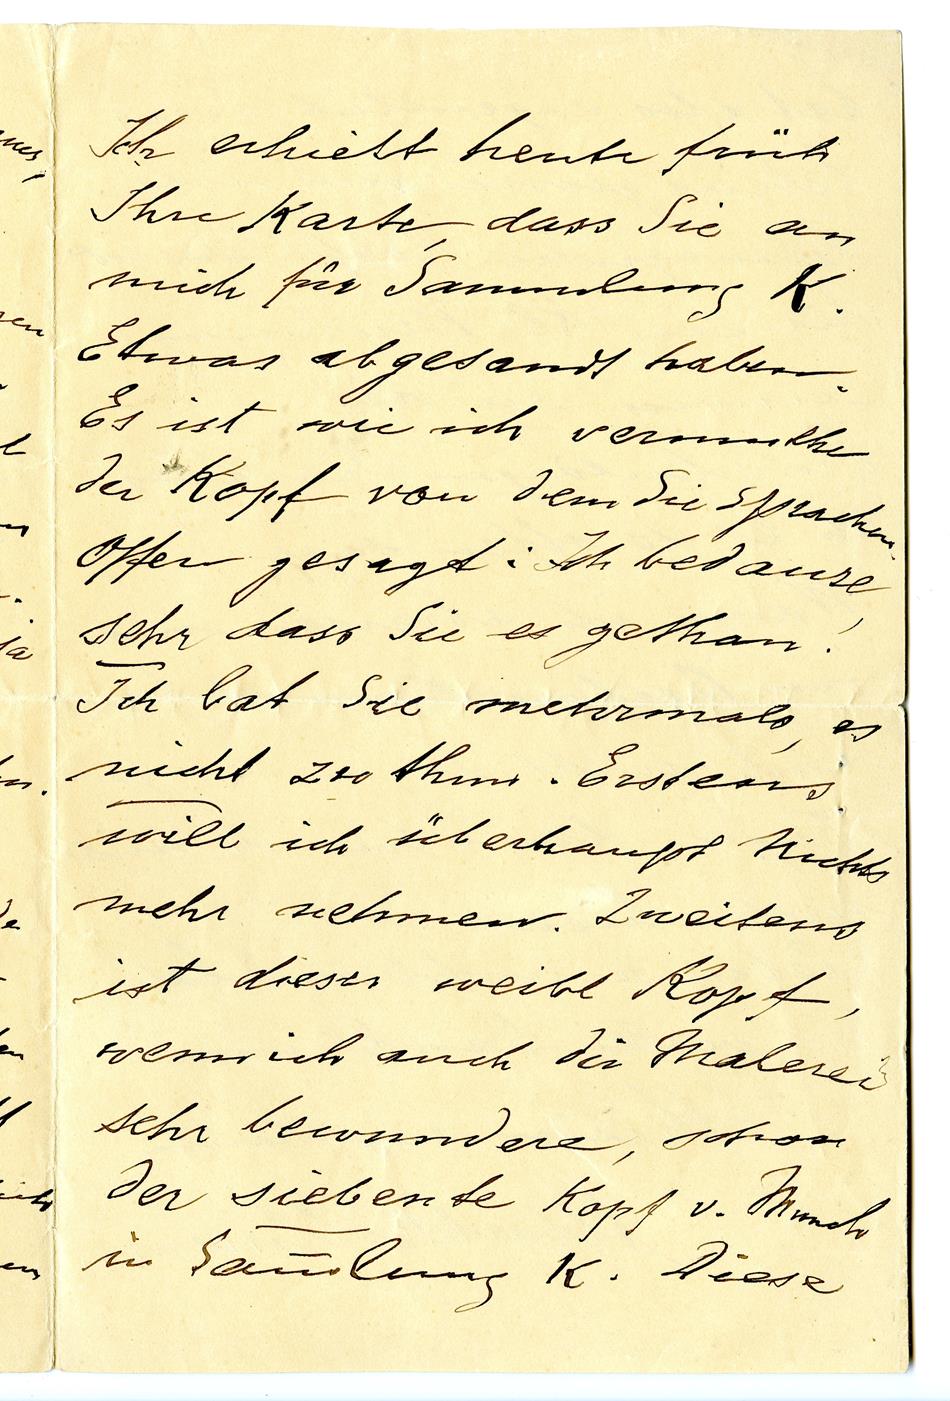 Ich erhielt heute früh
Ihre Karte, dass Sie an
mich für Sammlung K.
Etwas abgesandt haben.
Es ist wie ich vermuthe
der Kopf von dem Sie sprachen.
Offen gesagt: Ich bedaure
sehr dass Sie es gethan!
Ich bat Sie mehrmals, es
nicht zu thun. Erstens
will ich überhaupt Nichts
mehr nehmen. Zweitens
ist dieser weibl Kopf,
wenn ich auch die Malerei
sehr bewundere, schon
der siebente Kopf v. Munch
in Sam̅lung K. Diese